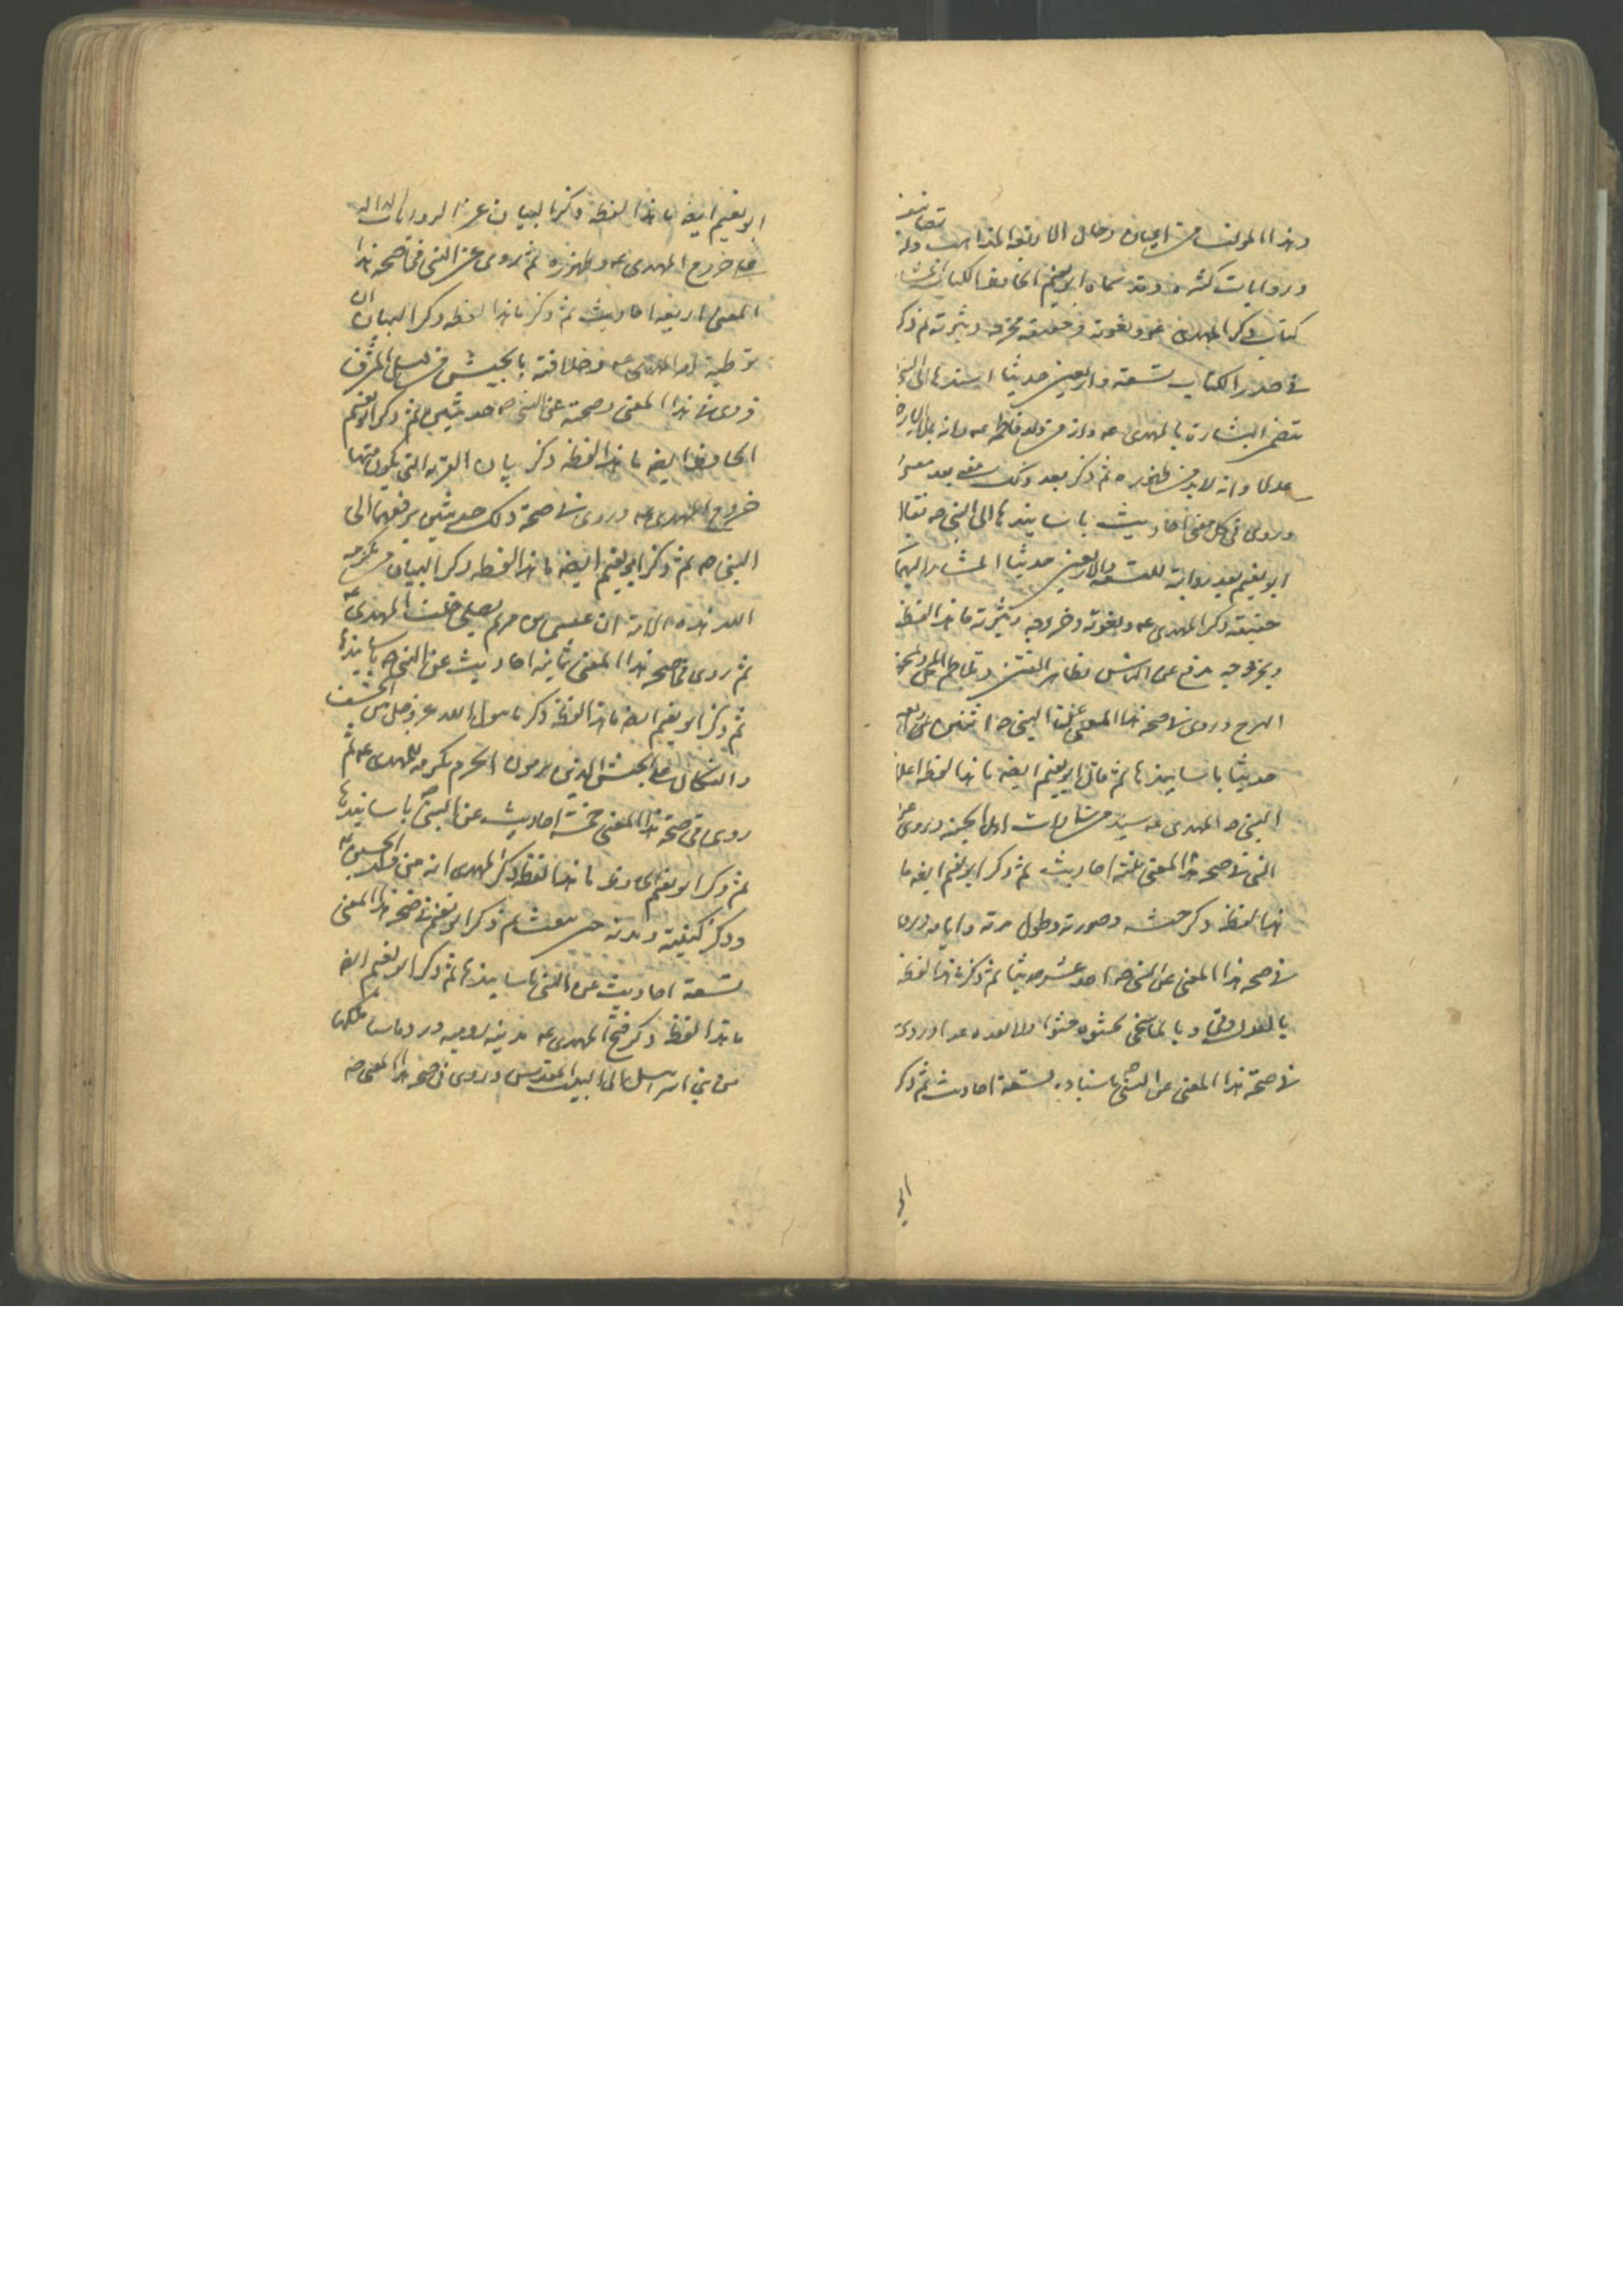 وهذا المؤلف من اعيان رجال الاربعة المذاهب وله تصانيف
وروايات كثيرة وقد سماه ابو نعيم الحافظ الكتاب
كتاب ذكر المهدى ونعوته وحقيقة مخرجه وثبوته ثم ذكر
فى صدر الكتاب تسعة واربعين حديثا اسندها الى النبى
تتضمن البشارة بالمهدى عه وانه من ولد فاطمه عه وانه يملأ الارض
عدلا وانه لابد من ظهوره ثم ذكر بعد ذلك معنى بعد معنى
وروى فى كل معنى احاديث باسانيدها الى النبى صه فقال
ابو نعيم بعد رواية التسعة والاربعين حديثا المشار اليها
حقيقة ذكر المهدى عه ونعوته وخروجه وثبوته ما هذا لفظه
وبخروجه يرفع عن الناس تظاهر الفتن وتلاحم المحن
الهرج وروى فى صحة هذا المعنى عن النبى صه اثنين واربعين
حديثا باسانيدها ثم قال ابو نعيم ايضه ما هذا لفظه اعلام
النبى صه المهدى عه سيد من سادات اهل الجنه وروى عن
النبى فى صحة هذا المعنى ثلثة احاديث ثم ذكر ابو نعيم ايضه ما
هذا لفظه ذكر جيشه وصورته وطول مدته وايامه وروى
فى صحة هذا المعنى عن النبى صه احد عشر حديثا ثم ذكر ما هذا لفظه
بالعدل وفى وبالمال سخى يحثوه حثوا ولا يعده عدا وروى
فى صحة هذا المعنى عن النبى صه باسناده تسعة احاديث ثم ذكر
ابو
ابو نعيم ايضه ما هذا لفظه ذكر البيان عن الروايات الدالة
على خروج المهدى عه وظهوره ثم روى عن النبى فى صحة هذا
المعنى اربعة احاديث ثم ذكر ما هذا لفظه ذكر البيان ان
توطية امر المهدى عه وخلافته بالجيش من قبل المشرق
فروى فى هذا المعنى وصحته عن النبى صه حديثين ثم ذكر ابو نعيم
الحافظ ايضه ما هذا لفظه ذكر بيان القرية التى يكون منها
خروج المهدى عه وروى فى صحة ذلك حديثين يرفعهما الى
النبى صه ثم ذكر ابو نعيم ايضه ما هذا لفظه ذكر البيان من تكرمة
الله هذه الامة ان عيسى بن مريم يصلى خلف المهدى عه
ثم روى فى صحة هذا المعنى ثمانية احاديث عن النبى صه باسانيدها
ثم ذكر ابو نعيم ايضه ما هذا لفظه ذكر ما ينزل الله عز وجل من الخسف
والنكال على الجيش الذين يرمون الحرم تكرمة للمهدى عه ثم
روى فى صحة هذا المعنى خمسة احاديث عن النبى صه باسانيدها
ثم ذكر ابو نعيم الحافظ ما هذا لفظه ذكر المهدى انه من ولد الحسين عه
وذكر كنيته وبدنه حين يبعث ثم ذكر ابو نعيم فى صحة هذا المعنى
تسعة احاديث عن النبى باسانيدها ثم ذكر ابو نعيم ايضه
ما هذا لفظه ذكر فتح المهدى عه مدينة الروميه ورد ما سبا ملكها
من بنى اسرائيل الى البيت المقدس وروى فى صحة هذا المعنى صه